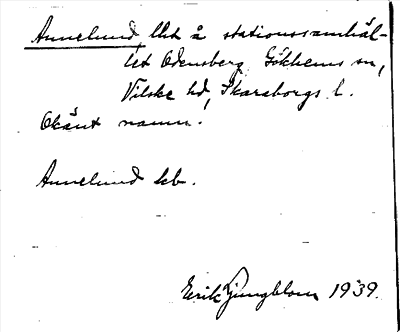 Annelund, lht å stationssamhäl-
let Odensberg, Gökhems sn,
Vilske hd, Skaraborgs l.
Okänt namn.
Annelund lcb.
Erik Ljungblom 1939.